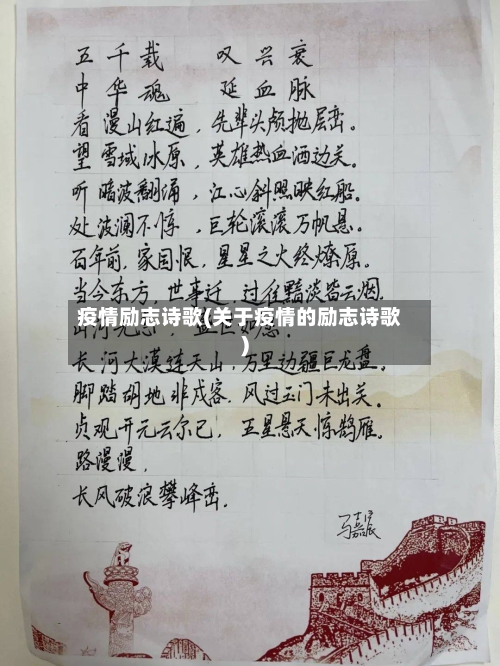 五千载 叹兴衰
中华魂 延血脉
看漫山红遍，先辈头颅抛层峦。
望雪域冰原，英雄热血洒边关。
听暗波翻涌，江心斜照映红船。
处波澜不惊，巨轮滚滚万帆悬。
百年前，家国恨，星星之火终燎原。
当今东方，世事迁，过往黯淡皆云烟。
疫情励志诗歌(关于疫情的励志诗歌
)
长河大漠连天山，万里边疆巨龙盘。
脚踏胡地非戍客，风过玉门未出关。
贞观开元云尔已，五星悬天惊鹊雁。
路漫漫，
长风破浪攀峰峦。